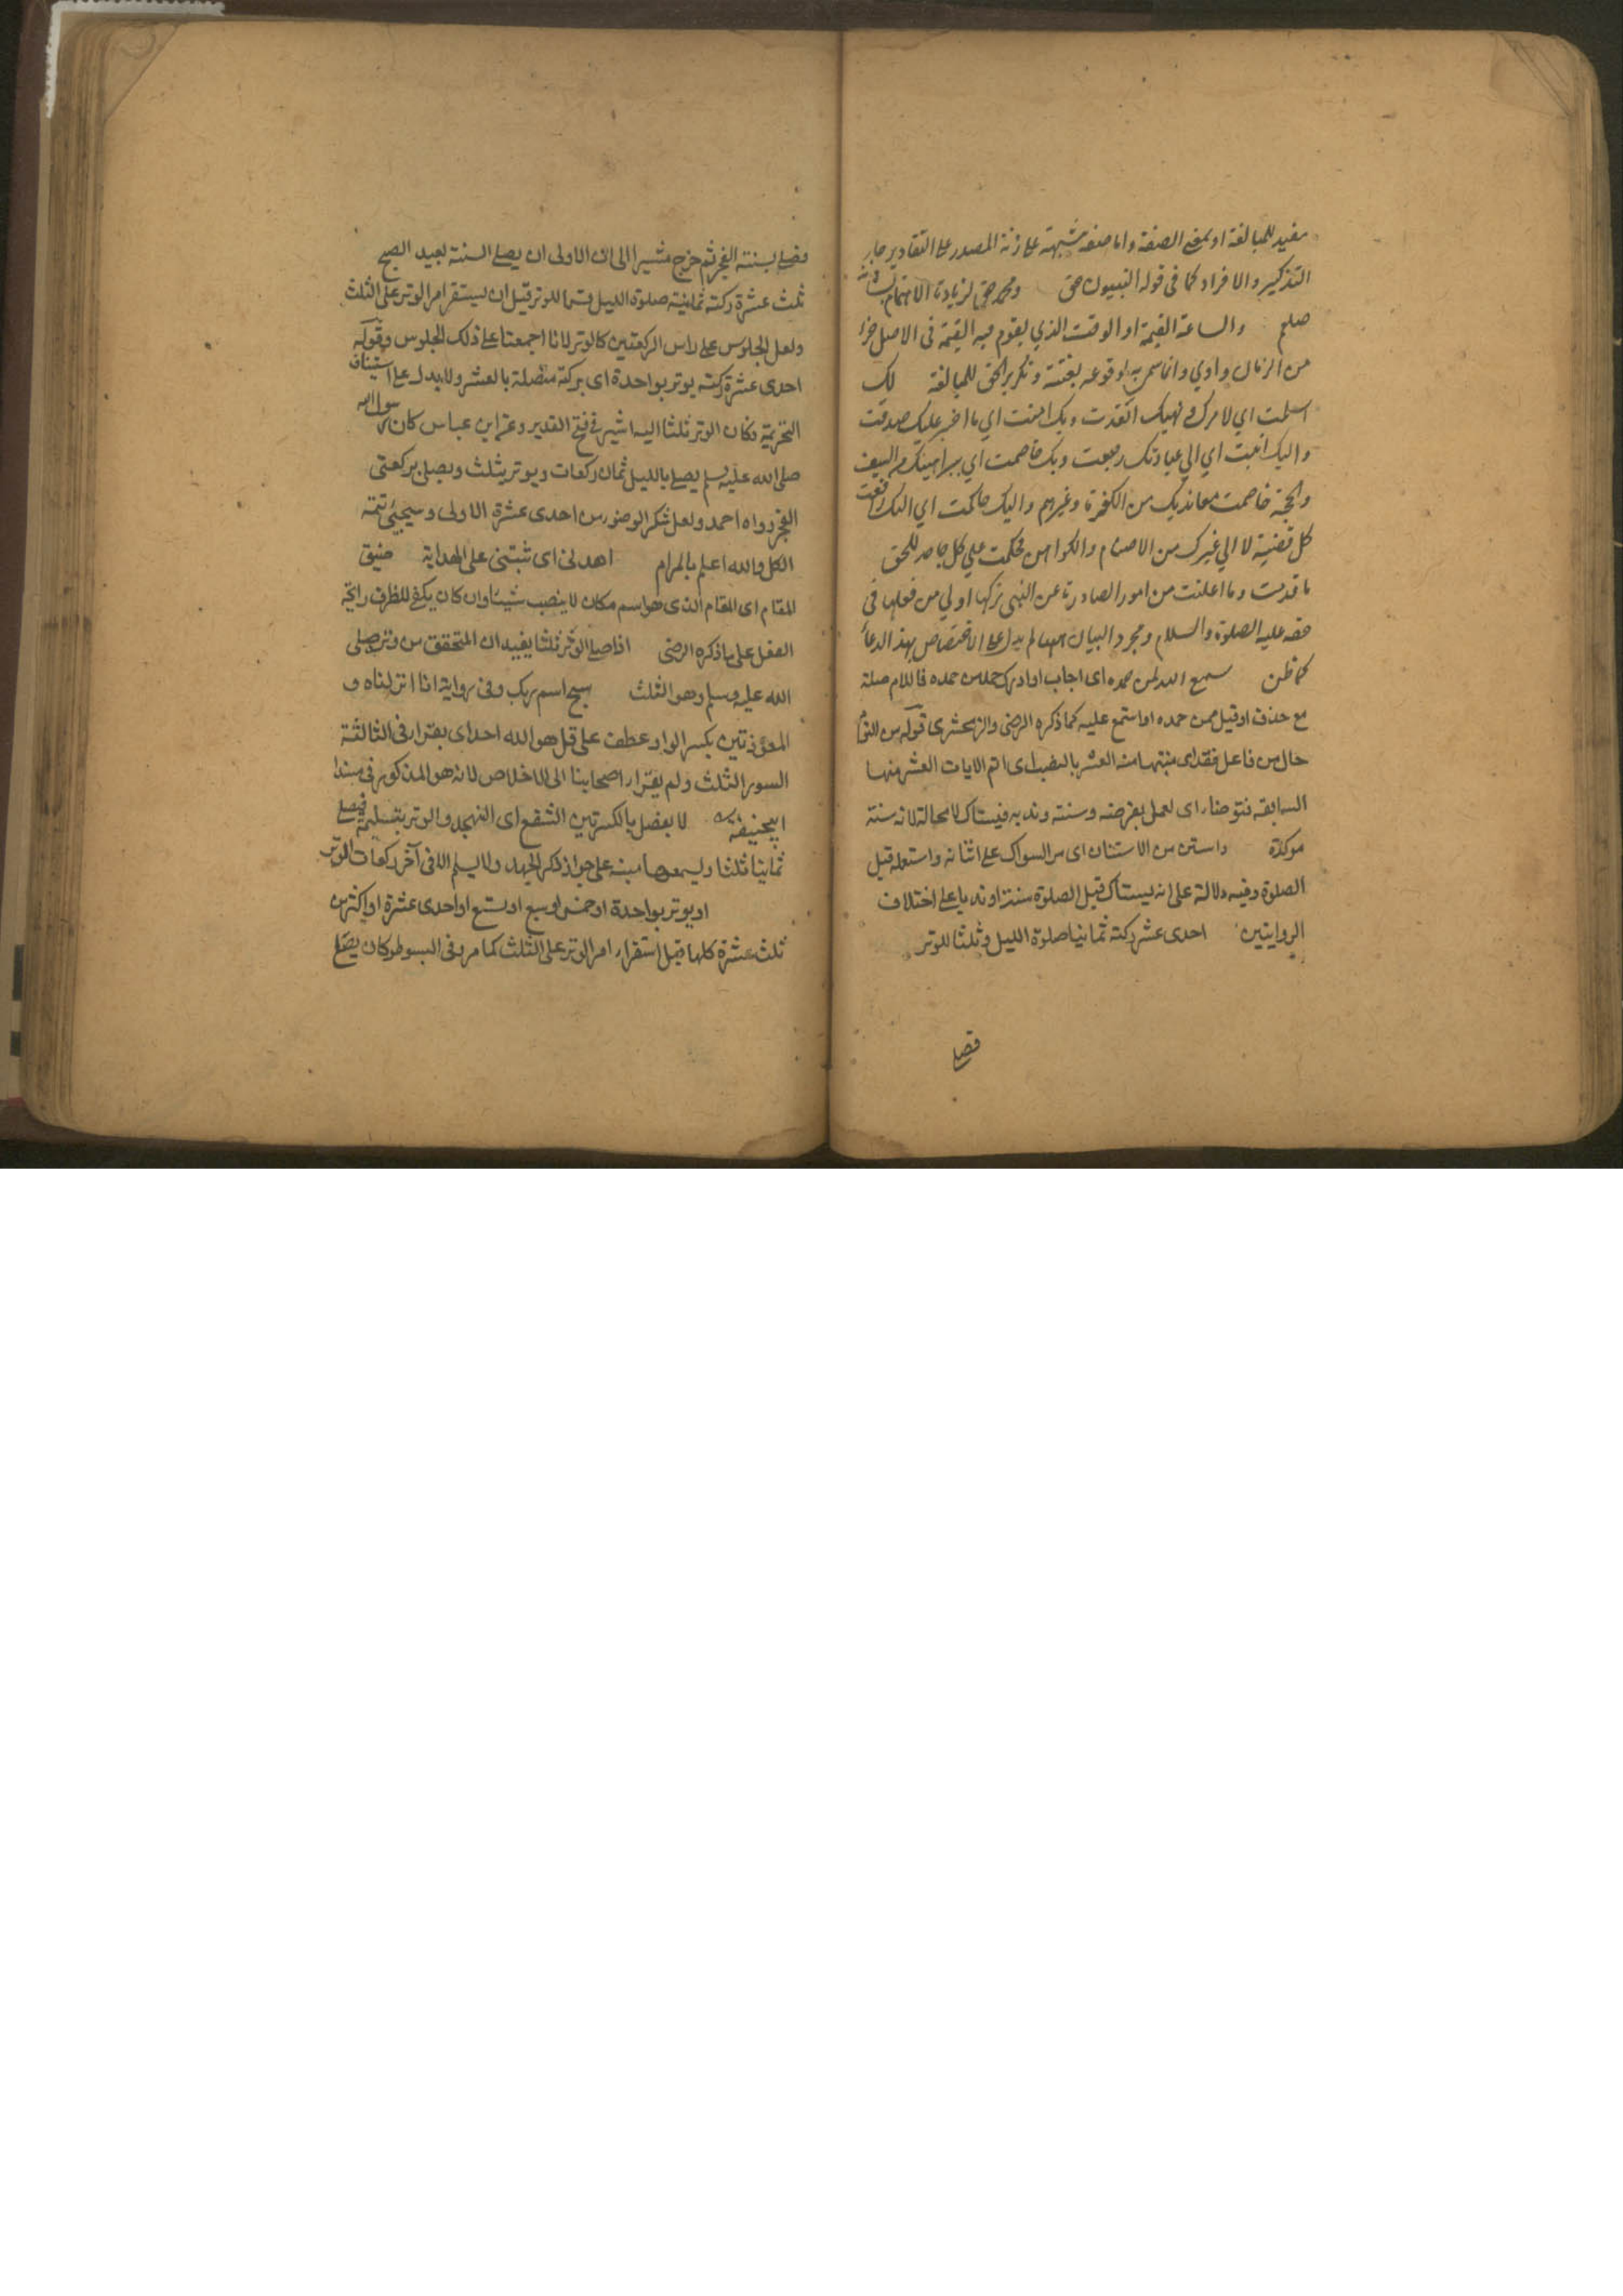 مفيد للمبالغة او بمعنى الصفة واما صفة مشبهة على زنة المصدر على التقادير جاز
التذكير والافراد كما فى قوله النبيون حق ومحمد حق لزيادة الاهتمام بشانه
صلعم والساعة القيمة او الوقت الذي يقوم فيه القيمة فى الاصل جزء
من الزمان واوي وانما سمى به لوقوعه بغتة وتكرير الحق للمبالغة لك
اسلمت اي لامرك ونهيك انقدت وبك امنت اي بما اخبر عليك صدقت
واليك انبت اي الي عبادتك رجعت وبك خاصمت اي ببراهينك من السيف
والحجة خاصمت معانديك من الكفرة وغيرهم واليك حاكمت اي اليك رفعت
كل قضية لا الي غيرك من الاصنام والكواهن فحكمت علي كل جاحد للحق
ما قدمت وما اعلنت من امور الصادرة عن النبى تركها اولي من فعلها فى
حقه عليه الصلوة والسلام ومجرد البيان العالم يدل على الاختصاص بهذا الدعاء
كما ظن سمع الله لمن حمده اى اجاب او ادرك حمد من حمده فاللام صلة
مع حذف او قيل ممن حمده او استمع عليه كما ذكره الرضى والزمخشرى قوله من النوم
حال من فاعل فقد اى منتبها منه العشر بالنصب اى اتم الايات العشر منها
السابقه فتوضاء اى لعمل بفرضه وسنته وندبه فيستاك لا محالة لانه سنة
موكدة واستن من الاستنان اى مر السواك على اسنانه واستعمله قبل
الصلوة وفيه دلالة على انه يستاك قبل الصلوة سنة او ندبا على اختلاف
الروايتين احدى عشر ركعة ثمانيا صلوة الليل وثلثا للوتر
فصلى
فصلى بسنته الفجر ثم خرج مشيرا الى ان الاولى ان يصلى السنة بعيد الصبح
ثلث عشرة ركعة ثمانية صلوة الليل للوتر قبل ان يستقر امر الوتر على الثلث
ولعل الجلوس على راس الركعتين كالوتر لانا اجمعنا على ذلك الجلوس وقوله
احدى عشرة ركعة يوتر بواحدة اى بركعة متصلة بالعشر ولا يدل على استيناف
التحريمة فكان الوتر ثلثا اليه اشير فى فتح القدير وعن ابن عباس كان رسول الله
صلى الله عليه وسلم يصلى بالليل ثمان ركعات ويوتر بثلث ويصلى بركعتى
الفجر رواه احمد ولعل شكر الوضوء من احدى عشرة الاولى وسيجئ تتمة
الكل والله اعلم بالمرام اهدنى اى ثبتنى على الهداية ضيق
المقام اى المقام الذى هو اسم مكان لا ينصب شيئا وان كان يكفى للظرف رائحة
الفعل على ما ذكره الرضى اذا صلى الوتر ثلثا يفيد ان المتحقق من وتر صلى
الله عليه وسلم وهو الثلث سبح اسم ربك وفى رواية انا انزلناه و
المعوذتين بكسر الواو عطف على قل هو الله احد اى يقرا فى الثالثة
السور الثلث ولم يقرا اصحابنا الى الاخلاص لانه هو المذكور فى مسند
ابيحنيفة لا يفصل بالكسرتين الشفع اى التهجد والوتر بتسليمة فيصلى
ثمانيا ثلثا ويسمعها مبنى على جواز ذكر الجهر ولا يسلم الا فى آخر ركعات الوتر
او يوتر بواحدة او خمس او سبع او تسع او احدى عشرة او اكثر من
ثلث عشرة كلها قبل استقرار امر الوتر على الثلث كما مر وفى المبسوط وكان يصلى